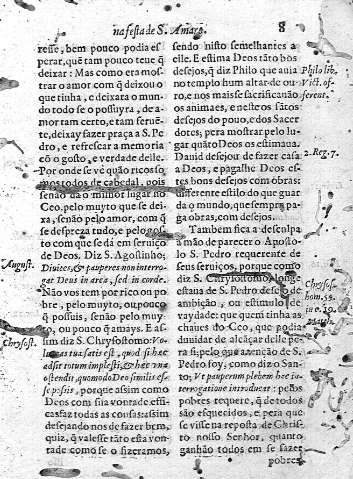 na festa de S. Amaro.
8
resse, bem pouco podia es
perar, quẽ tam pouco teue q̃
deixar: Mas como era mos-
trar o amor com q̃ deixou o
que tinha, e deixara o mun-
do todo se o possuyra, de a-
mor tam certo, e tam ferué-
te, deixay fazer praça a S. Pe
dro, e refrescar a memoria
cõ o gosto, e verdade delle.
Por onde se vé quã ricos so
mos todos de cabedal, pois
senão dá o milhor lugar no
Ceo, pello muyto que se dei-
xa, senão pelo amor, com q̃
se despreza tudo, e pelo gos-
to com que se dá em seruiço
de Deos. Diz S. Agostinho;
Diuites, & pauperes non interro-
gat Deus in area, sed in corde.
Não vos tem por rico ou po-
bre, pelo muyto, ou pouco
q̃ possuis, senão pelo muy-
to, ou pouco q̃ amays. E as-
sim diz S. Chrysostomo: Vo-
luntas tua satis est, quod si hæc
adsit totum implesti, & hæc
ostendit, quomodo Deo similis es-
se possis, porque assim como
Deos com sua vontade effi-
cas faz todas as cousas: assim
desejando nos de fazer bem,
quiz, q̃ valesse tãto esta von-
tade como se o fizeramos,
August.
Chrysost.
sendo nisto semelhantes a
elle. E estima Deos tãto bõs
desejos, q̃ diz Philo que auia
no templo hum altar de ou-
ro, e nos mais se sacrificauão
os animaes, e neste os sãtos
desejos do pouo, e dos Sacer
dotes; pera mostrar pelo lu-
gar quãto Deos os estimaua.
Dauid desejou de fazer casa
a Deos, e pagalhe Deos es-
tes bons desejos com obras:
differente estilo do que guar
da o mundo, que sempre pa-
ga obras, com desejos.
Tambem fica a desculpa
a mão de parecer o Aposto-
lo S. Pedro requerente de
seus seruiços, porque como
diz S. Chrysostomo, longe
estaua de S. Pedro desejo de
ambição, ou estimulo
vaydade: que quem tinha as
chaues do Ceo, que podia
duuidar de alcãçar delle pe-
ra si; pelo que a tenção de S.
Pedro foy, como diz o San-
to; Vt pauperum plebem hac in-
terrogatione introduceret: pelos
pobres requere, q̃ de todos
são esquecidos, e pera que
se visse na reposta de Chris-
to nosso Senhor, quanto
ganhão todos em se fazer
pobres
Philo lib.
Vict. of-
ferent.
2. Reg. 7.
Chrysos-
hom. 55.